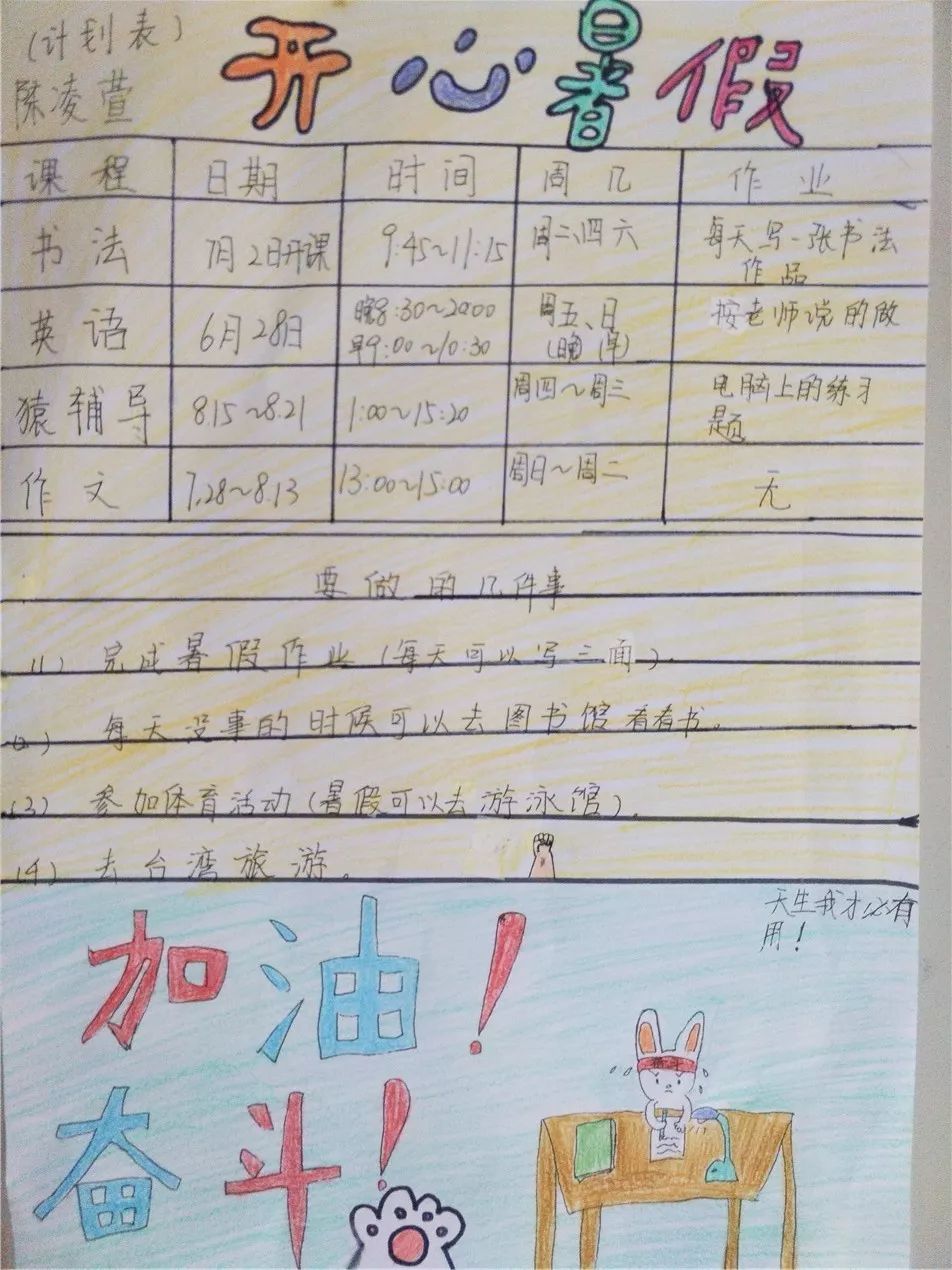 (计划表)
陈凌萱
开心暑假
课程 日期 时间 周几 作业
书法 7月2日开课 9:45~11:15 周二、四六 每天写一张书法
作品
英语 6月28日 晚8:30~20:00 周五、日 按老师说的做
早9:00~10:30 (晚 (早)
猿辅导 8.15~8.21 1:00~15:20 周四~周三 电脑上的练习
题
作文 7.28~8.13 13:00~15:00 周日~周二 无
要做的几件事
(1) 完成暑假作业(每天可以写三面).
(2) 每天没事的时候可以去图书馆看看书。
(3) 参加体育活动(暑假可以去游泳馆).
(4) 去台湾旅游。
天生我才必有
用!
加油!
奋斗!